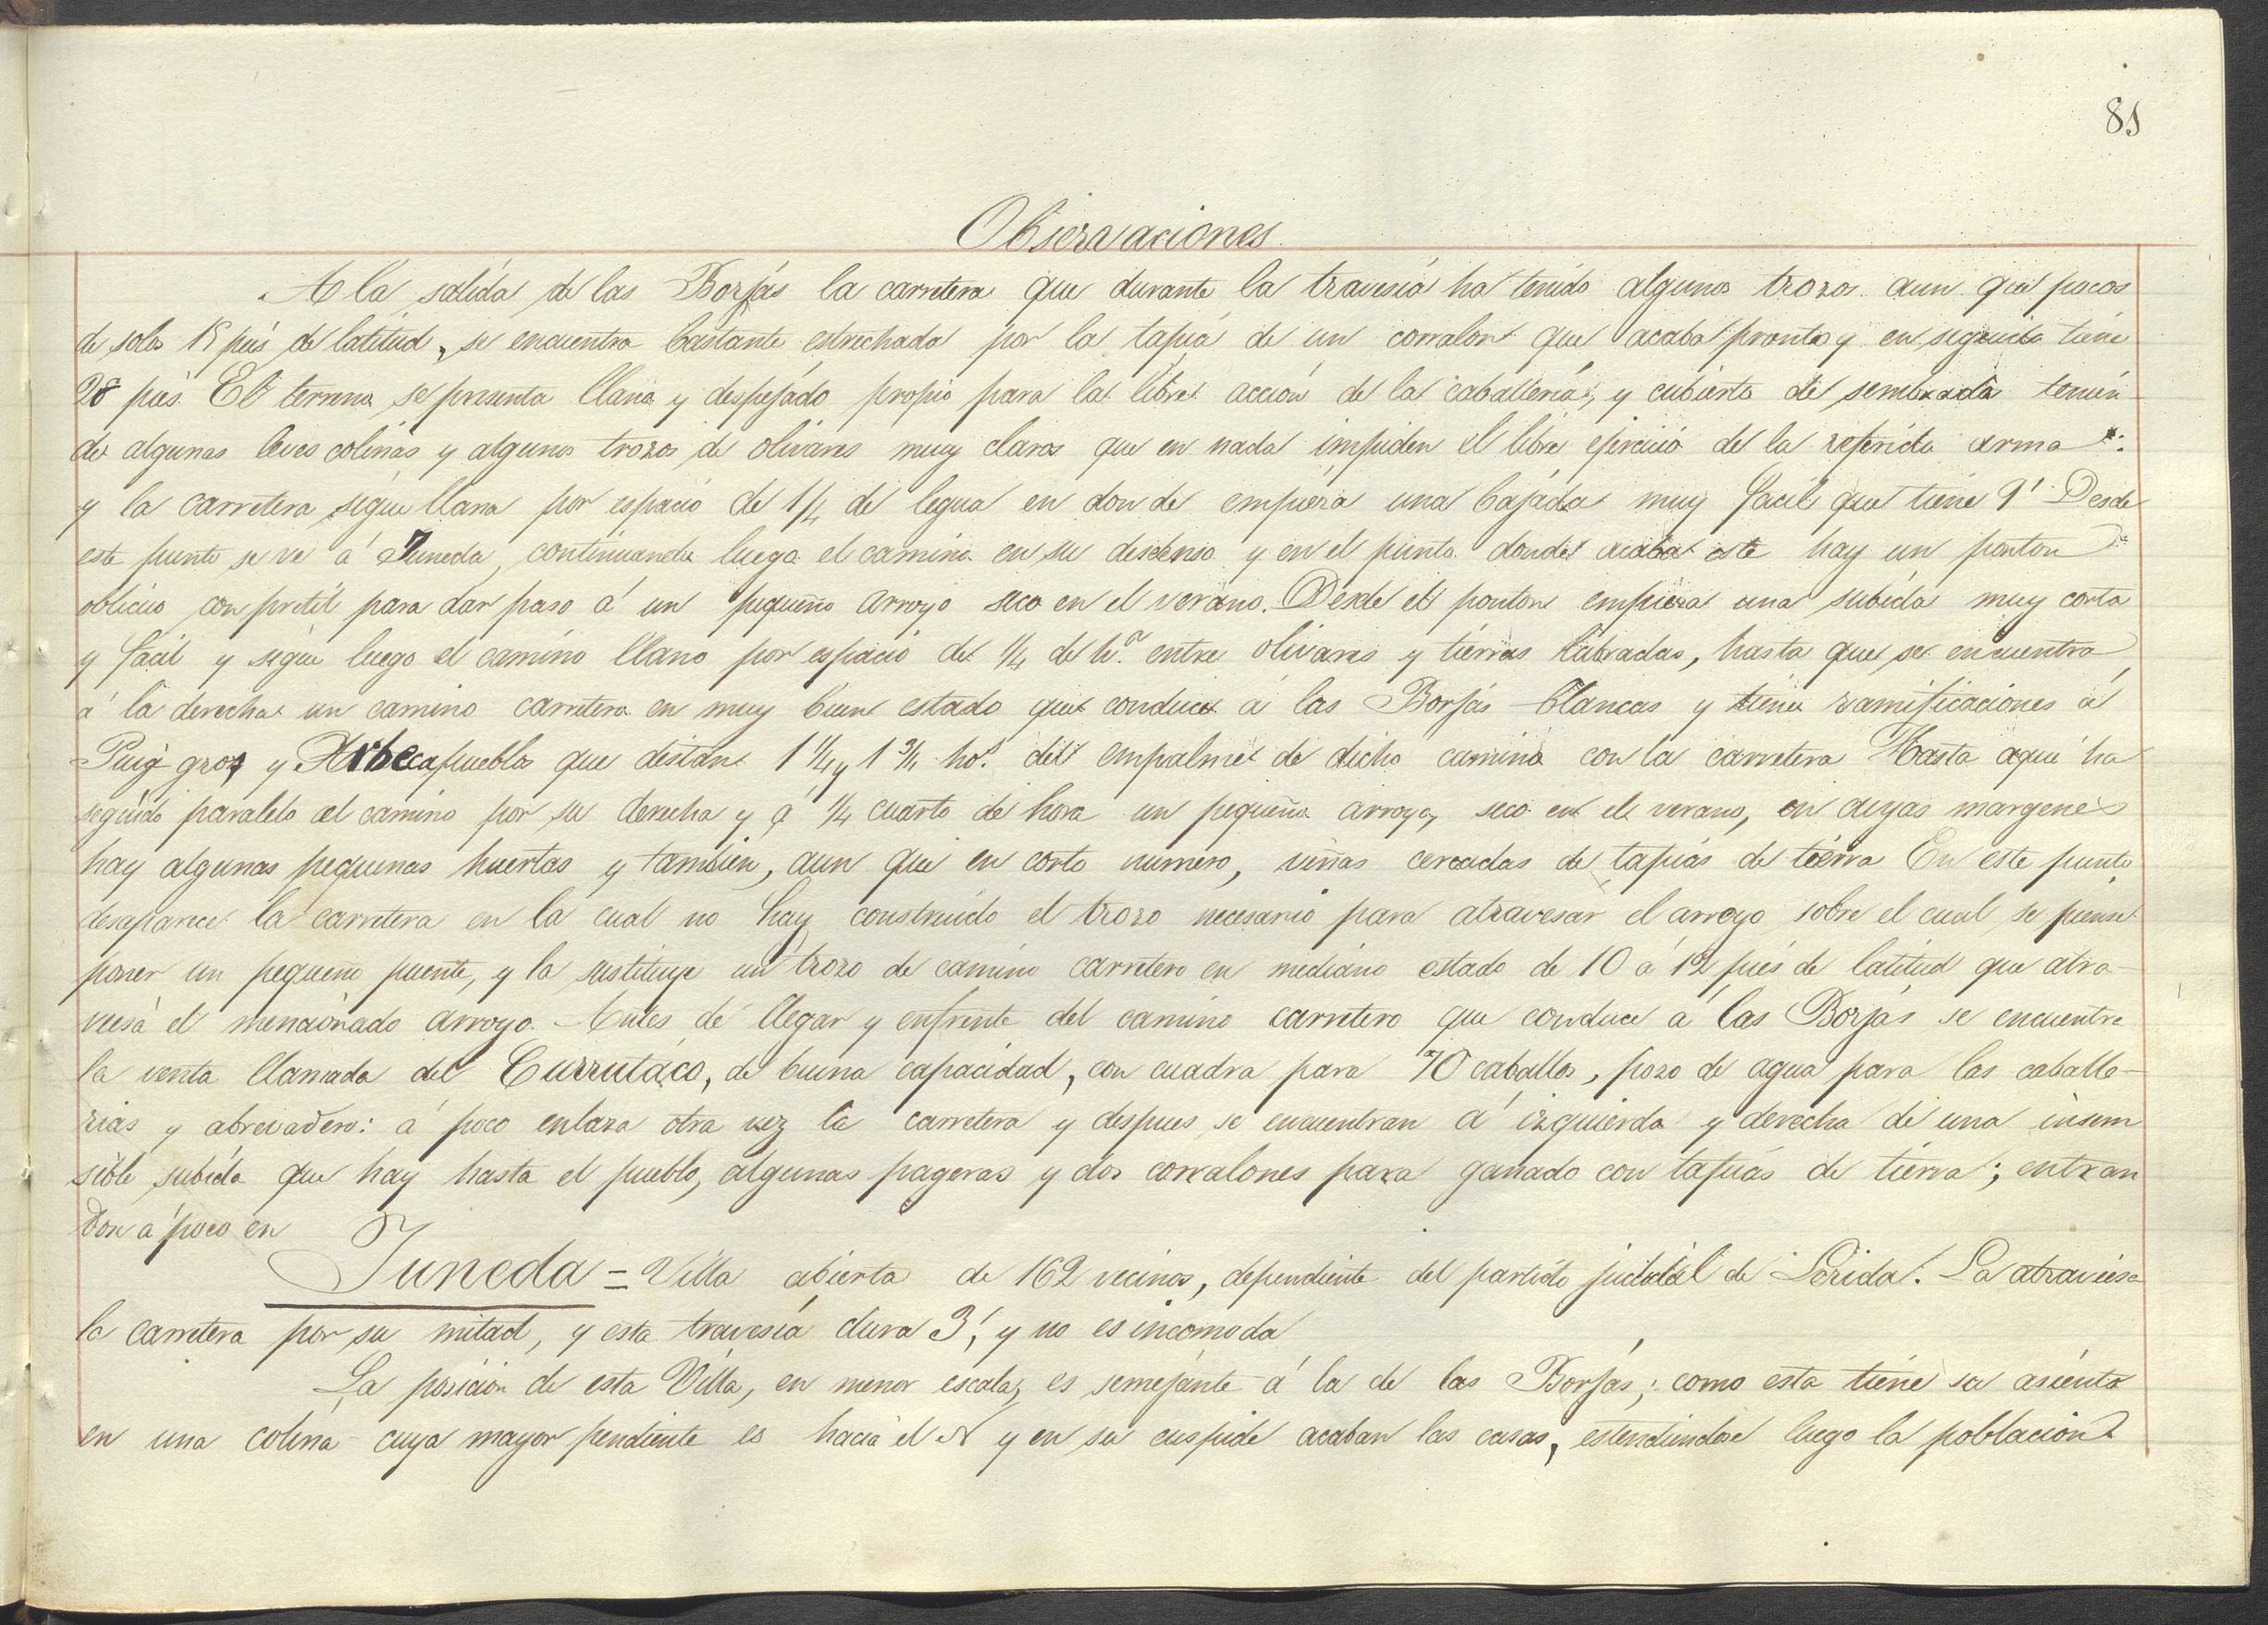 81
Observaciones
A la salida de las Borjas la carretera que durante la travesia ha tenido algunos trozos aun que pocos
de solos 18 pies de latitud, se encuentra bastante estrechada por la tapia de un corralon que acaba pronto y en seguida tiene
28 pies. El terreno se presenta llano y despejado propio para la libre acción de la caballeria, y cubierto de sembrado tenien-
do algunas leves colinas y algunos trozos de olivares muy claros que en nada impiden el libre ejercicio de la referida arma:
y la carretera sigue llana por espacio de 1/4 de legua en donde empieza una bajada muy facil que tiene 9' Desde
este punto se ve á Juneda, continuando luego el camino en su descenso y en el punto donde acaba este hay un ponton
oblicuo con pretil para dar paso á un pequeño arroyo seco en el verano. Desde el ponton empieza una subida muy corta
y facil y sigue luego el camino llano por espacio de 1/4 de hª. entre olivares y tierras labradas, hasta que se encuentra
á la derecha un camino carretero en muy buen estado que conduce á las Borjas blancas y tiene ramificaciones á
Puig gros y Arbeca pueblos que distan 1 1/4 y 1 3/4 hoˢ. del empalme de dicho camino con la carretera Hasta aqui ha
seguido paralelo al camino por su derecha y á 1/4 cuarto de hora un pequeño arroyo, seco en el verano, en cuyas margenes
hay algunas pequenas huertas y tambien, aun que en corto numero, viñas cercadas de tapias de tierra En este punto
desaparece la carretera en la cual no hay construido el trozo necesario para atravesar el arroyo sobre el cual se piensa
poner un pequeño puente, y la sustituye un trozo de camino carretero en mediano estado de 10 á 12 pies de latitud que atra-
viesa el mencionado arroyo. Antes de llegar y enfrente del camino carretero que conduce á las Borjas se encuentra
la venta llamada del Currutaco, de buena capacidad, con cuadra para 70 caballos, pozo de agua para las caballe-
rias y abrevadero: á poco enlaza otra vez la carretera y despues se encuentran á izquierda y derecha de una insen
sible subida que hay hasta el pueblo, algunas pageras y dos corralones para ganado con tapias de tierra; entran
don á poco en
Juneda = Villa abierta de 162 vecinos, dependiente del partido judicial de Lérida. La atraviesa
la carretera por su mitad, y esta travesia dura 3', y no es incomoda
La posicion de esta Villa, en menor escala, es semejante á la de las Borjas; como esta tiene su asiento
en una colina cuya mayor pendiente es hacia el N y en su cuspide acaban las casas, estendiendose luego la poblacion